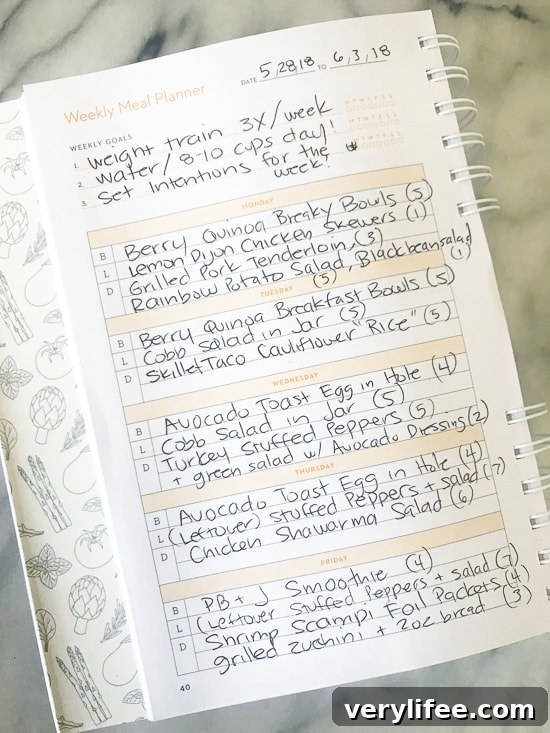 DATE 5,28,18 TO 6,3,18
Weekly Meal Planner
WEEKLY GOALS
M T W T F S S
1. weight train 3x/week
M T W T F S S
2. water/8-10 cups day!
M T W T F S S
3. Set intentions for the
week!
MONDAY
B Berry Quinoa Breaky Bowls (5)
L Lemon Dijon Chicken Skewers (1)
D Grilled Pork Tenderloin, (3)
Rainbow Potato Salad, Blackbean salad
(5) (1)
TUESDAY
B Berry Quinoa Breakfast Bowls (5)
L Cobb Salad in Jar (5)
D Skillet Taco Cauliflower "Rice" (5)
WEDNESDAY
B Avocado Toast Egg in Hole (4)
L Cobb Salad in Jar (5)
D Turkey Stuffed Peppers (5)
+ green salad w/ Avocado Dressing (2)
THURSDAY
B Avocado Toast Egg in Hole (4)
L (Leftover) Stuffed Peppers + salad (7)
D Chicken Shawarma Salad (6)
FRIDAY
B PB + J Smoothie (4)
L (Leftover Stuffed Peppers + salad (7)
D Shrimp Scampi Foil Packets (4)
grilled zuchini + 2oz bread (3)
40
verylifee.com